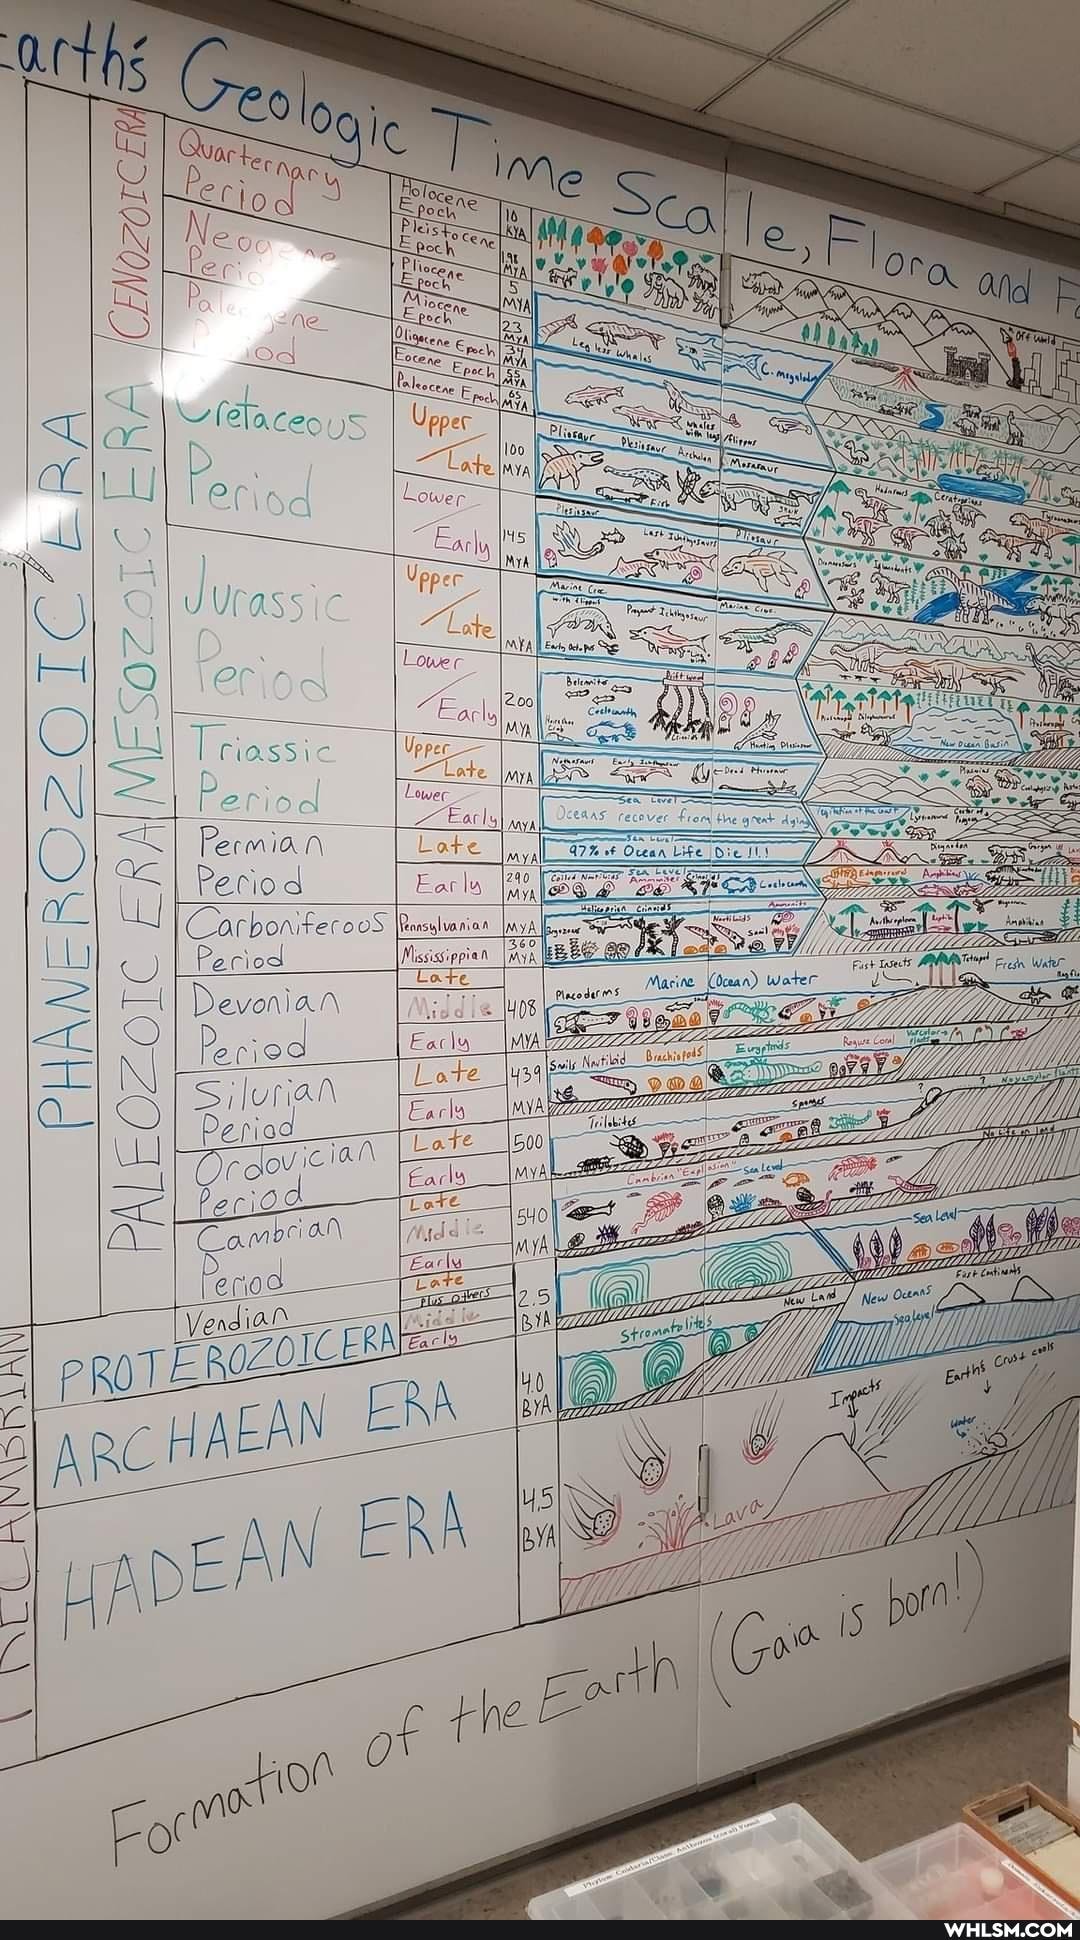 Earth's Geologic Time Scale, Flora and Fa
PHANEROZOIC ERA
CENOZOIC ERA
MESOZOIC ERA
PALEOZOIC ERA
PRECAMBRIAN
Quarternary
Period
Neogene
Period
Paleogene
Period
Cretaceous
Period
Jurassic
Period
Triassic
Period
Permian
Period
Carboniferous
Period
Devonian
Period
Silurian
Period
Ordovician
Period
Cambrian
Period
Vendian
PROTEROZOIC ERA
ARCHAEAN ERA
HADEAN ERA
Holocene
Epoch
Pleistocene
Epoch
Pliocene
Epoch
Miocene
Epoch
Oligocene Epoch
Eocene Epoch
Paleocene Epoch
Upper
Late
Lower
Early
Upper
Late
Lower
Early
Upper
Late
Lower
Early
Late
Early
Pennsylvanian
Mississippian
Late
Middle
Early
Late
Early
Late
Early
Late
Middle
Early
Late
Plus others
Middle
Early
10
KYA
1.98
MYA
5
MYA
23
MYA
34
MYA
55
MYA
65
MYA
100
MYA
145
MYA
MYA
200
MYA
MYA
MYA
MYA
290
MYA
MYA
360
MYA
408
MYA
439
MYA
500
MYA
540
MYA
2.5
BYA
4.0
BYA
4.5
BYA
Off world
Legless Whales
C. megalodon
whales
with legs/flippers
Pliosaur Plesiosaur Archelon Mosasaur
Fish
Hadrosaurs Ceratopsians
Plesiosaur Last Ichthyosaurs Pliosaur
Marine Croc
with flippers Pregnant Ichthyosaur Marine Croc.
Early Octopus
Belemnite Driftwood
Coelacanth
Horseshoe
Crab Crinoids Hunting Plesiosaur
Dilophosaurus New Ocean Basin
Nothosaurs Early Ichthyosaur Dead Pterosaur
Sea Level
Oceans recover from the great dying
Sea Level
97% of Ocean Life Die!!!
Coiled Nautiloids Sea Level Ammonites Crinoids Coelacanth
Edaphosaurus Amphibians
Helicoprion Crinoids Ammonite
Bryozoans Nautiloids Snail
Arthropleura Reptiles Amphibian
Placoderms Marine (Ocean) Water First Insects Tetrapod Fresh Water
Snails Nautiloid Brachiopods Eurypterids Rugose Coral Vascular
plants
Trilobites Sponges ? ? No vascular plants
Cambrian "Explosion" Sea Level No Life on land
Sea Level
New Land New Oceans First Continents
Stromatolites Sea Level
Impacts Earth's Crust cools
Water
Lava
Formation of the Earth (Gaia is born!)
WHLSM.COM